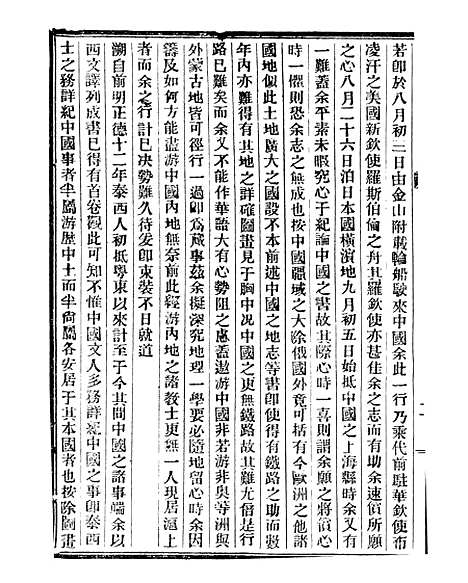 若卽於八月初二日由金山附載輪船駛來中國余此一行乃乘代前駐華欽使布
凌汗之美國新欽使羅斯伯倫之舟其羅欽使亦甚佳余之志而有助余速償所願
之心八月二十六日泊日本國橫濱地九月初五日始抵中國之上海縣時余又有
一難蓋余平素未暇究心于紀論中國之書故其際心時一喜則謂余願之將竟償
時一懼則恐余志之無成也按中國疆域之大除俄國外竟可括有今歐洲之他諸
國地似此土地廣大之國設不本前述中國之地志等書卽使得有鐵路之助而數
年內亦難得有其地之詳確圖畫見于胸中况中國之更無鐵路故其難尤倍是行
路已難矣而余又不能作華語大有心勢阻之慮蓋遨游中國非若游奧等洲與
外蒙古地皆可徑行一過卽爲蕆事茲余擬深究地理一學要必隨地留心時余因
籌及如何方能盡游中國內地無奈前此經游內地之諸教士更無一人現居滬上
者而余之行計已决勢難久待爰卽束裝不日就道
溯自前明正德十二年泰西人初抵粤東以來計至于今其間中國之諸事端余以
西文譯列成書已得有首卷觀此可知不惟中國文人多務詳紀中國之事卽泰西
士之務詳紀中國事者半屬游歷中土而半尙屬各安居于其本國者也按除圖畫